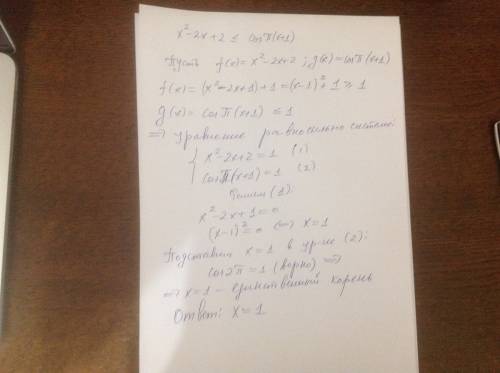 x²-2x+2 ≤ cosπ(x+1)
Пусть f(x)=x²-2x+2; g(x)=cosπ(x+1)
f(x)=(x²-2x+1)+1=(x-1)²+1≥1
g(x)=cosπ(x+1) ≤1
⇒ уравнение равносильно системе:
{ x²-2x+2=1 (1)
cosπ(x+1)=1 (2)
Решим (1):
x²-2x+1=0
(x-1)²=0 ⇔ x=1
Подставим x=1 в ур-ие (2):
cos2π=1 (верно) ⇒
⇒ x=1 - единственный корень
Ответ: x=1